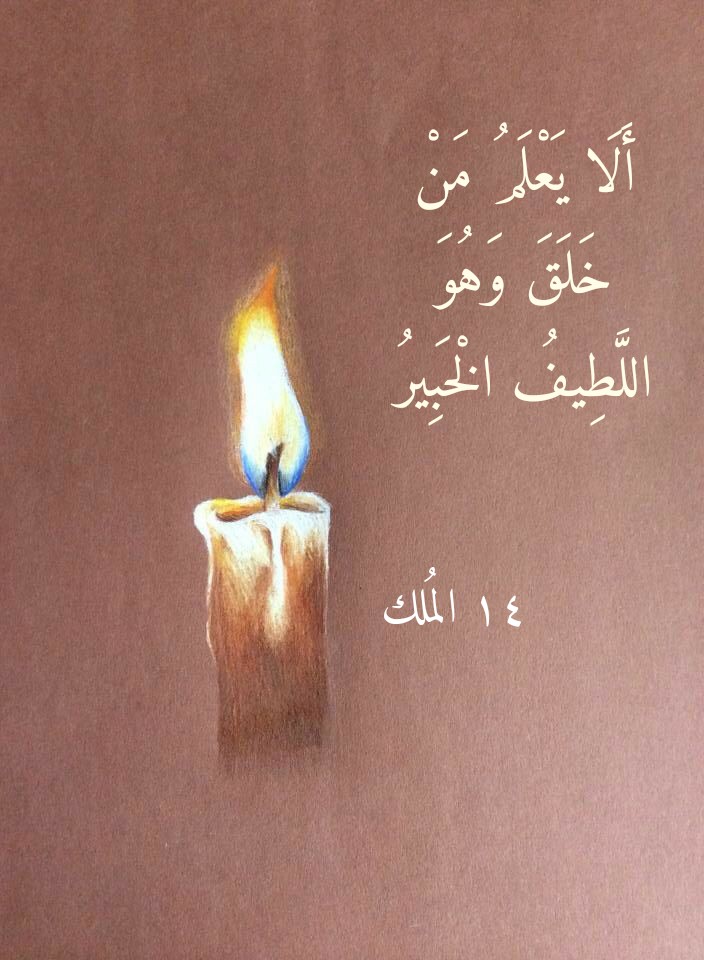 أَلَا يَعْلَمُ مَنْ
خَلَقَ وَهُوَ
اللَّطِيفُ الْخَبِيرُ
١٤ المُلك